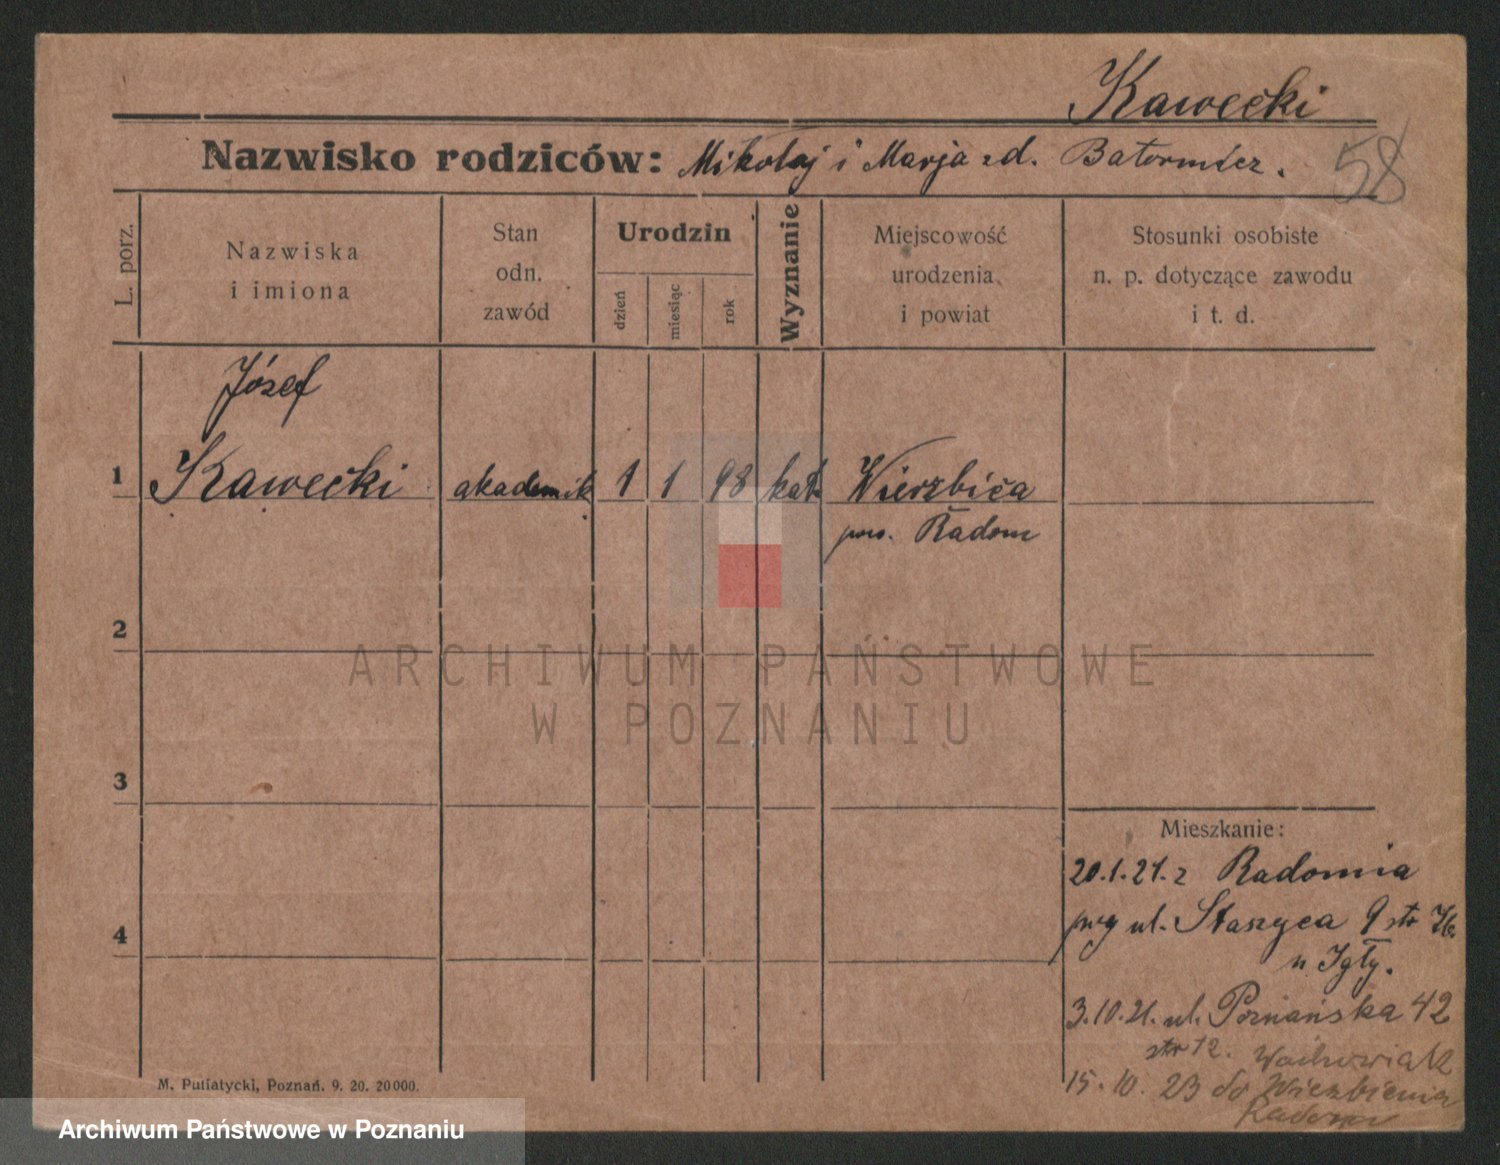 Kawecki
Nazwisko rodziców: Mikołaj i Marja zd. Batormicz.
58
L. porz.
Nazwiska
i imiona
Stan
odn.
zawód
Urodzin
dzień
miesiąc
rok
Wyznanie
Miejscowość
urodzenia
i powiat
Stosunki osobiste
n. p. dotyczące zawodu
i t. d.
Józef
1 Kawecki akademik 1 1 98 kat. Wierzbica
pow. Radom
2
ARCHIWUM PAŃSTWOWE
W POZNANIU
3
Mieszkanie:
20.1.21. z Radomia
ul. Staszyca 9 str
u Igły.
4
3.10.21. ul. Poznańska 42
str 12. Wachowiak
15.10.23 do Wierzbicnia
Radom
M. Putiatycki, Poznań. 9. 20. 20000.
Archiwum Państwowe w Poznaniu